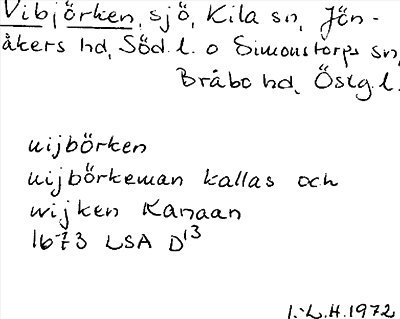 Vibjörken, sjö, Kila sn, Jön-
åkers hd, Söd.l. o Simonstorps sn,
Bråbo hd, Östg.l.
uijbörken
uijbörkeman kallas och
wijken Kanaan
1673 LSA D¹³
I.-L.H. 1972